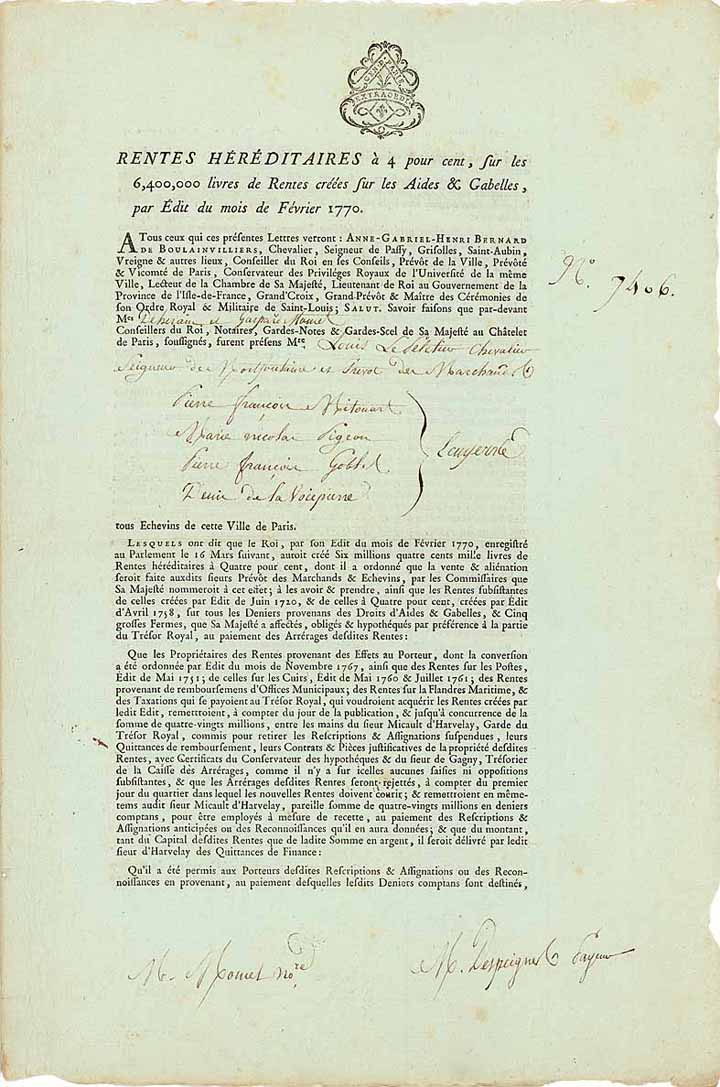 GEN. PARIS
EXTRAORD.
RENTES HÉRÉDITAIRES à 4 pour cent, sur les
6,400,000 livres de Rentes créées sur les Aides & Gabelles,
par Édit du mois de Février 1770.
A Tous ceux qui ces présentes Lettres verront : ANNE-GABRIEL-HENRI BERNARD
DE BOULAINVILLIERS, Chevalier, Seigneur de Passy, Grisolles, Saint-Aubin,
Vreigne & autres lieux, Conseiller du Roi en ses Conseils, Prévôt de la Ville, Prévôté
& Vicomté de Paris, Conservateur des Priviléges Royaux de l'Université de la même
Ville, Lecteur de la Chambre de Sa Majesté, Lieutenant de Roi au Gouvernement de la
Province de l'Isle-de-France, Grand'Croix, Grand-Prévôt & Maître des Cérémonies de
son Ordre Royal & Militaire de Saint-Louis; SALUT. Savoir faisons que par-devant
Mes Deherain et Gaspard Momet
Conseillers du Roi, Notaires, Gardes-Notes & Gardes-Scel de Sa Majesté au Châtelet
de Paris, soussignés, furent présens Mre. Louis Le Peletier Chevalier
Seigneur de Montfontaine et Prevot des Marchands
Pierre françois Mitouart
Marie nicolas Pigeon
Pierre françois Goblet
Denis de la Voiepierre
tous Echevins de cette Ville de Paris.
LESQUELS ont dit que le Roi, par son Edit du mois de Février 1770, enregistré
au Parlement le 16 Mars suivant, auroit créé Six millions quatre cents mille livres de
Rentes héréditaires à Quatre pour cent, dont il a ordonné que la vente & aliénation
seroit faite auxdits sieurs Prévôt des Marchands & Echevins, par les Commissaires que
Sa Majesté nommeroit à cet effet; à les avoir & prendre, ainsi que les Rentes subsistantes
de celles créées par Edit de Juin 1720, & de celles à Quatre pour cent, créées par Edit
d'Avril 1758, sur tous les Deniers provenans des Droits d'Aides & Gabelles, & Cinq
grosses Fermes, que Sa Majesté a affectés, obligés & hypothéqués par préférence à la partie
du Trésor Royal, au paiement des Arrérages desdites Rentes:
Que les Propriétaires des Rentes provenant des Effets au Porteur, dont la conversion
a été ordonnée par Edit du mois de Novembre 1767, ainsi que des Rentes sur les Postes,
Edit de Mai 1751; de celles sur les Cuirs, Edit de Mai 1760 & Juillet 1761; des Rentes
provenant de remboursemens d'Offices Municipaux; des Rentes sur la Flandres Maritime, &
des Taxations qui se payoient au Trésor Royal, qui voudroient acquérir les Rentes créées par
ledit Edit, remettroient, à compter du jour de la publication, & jusqu'à concurrence de la
somme de quatre-vingts millions, entre les mains du sieur Micault d'Harvelay, Garde du
Trésor Royal, commis pour retirer les Rescriptions & Assignations suspendues, leurs
Quittances de remboursement, leurs Contrats & Pièces justificatives de la propriété desdites
Rentes, avec Certificats du Conservateur des hypothéques & du sieur de Gagny, Trésorier
de la Caisse des Arrérages, comme il n'y a sur icelles aucunes saisies ni oppositions
subsistantes, & que les Arrérages desdites Rentes seront rejettés, à compter du premier
jour du quartier dans lequel les nouvelles Rentes doivent courir; & remettroient en même-
tems audit sieur Micault d'Harvelay, pareille somme de quatre-vingts millions en deniers
comptans, pour être employés à mesure de recette, au paiement des Rescriptions &
Assignations anticipées ou des Reconnoissances qu'il en aura données; & que du montant,
tant du Capital desdites Rentes que de ladite Somme en argent, il seroit délivré par ledit
sieur d'Harvelay des Quittances de Finance:
Qu'il a été permis aux Porteurs desdites Rescriptions & Assignations ou des Recon-
noissances en provenant, au paiement desquelles lesdits Deniers comptans sont destinés,
N.° 7406.
M. Momet nore
M. Despeignes Payeur